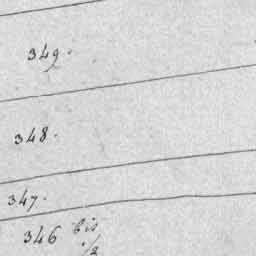 349.
348.
347.
346 bis
1/2